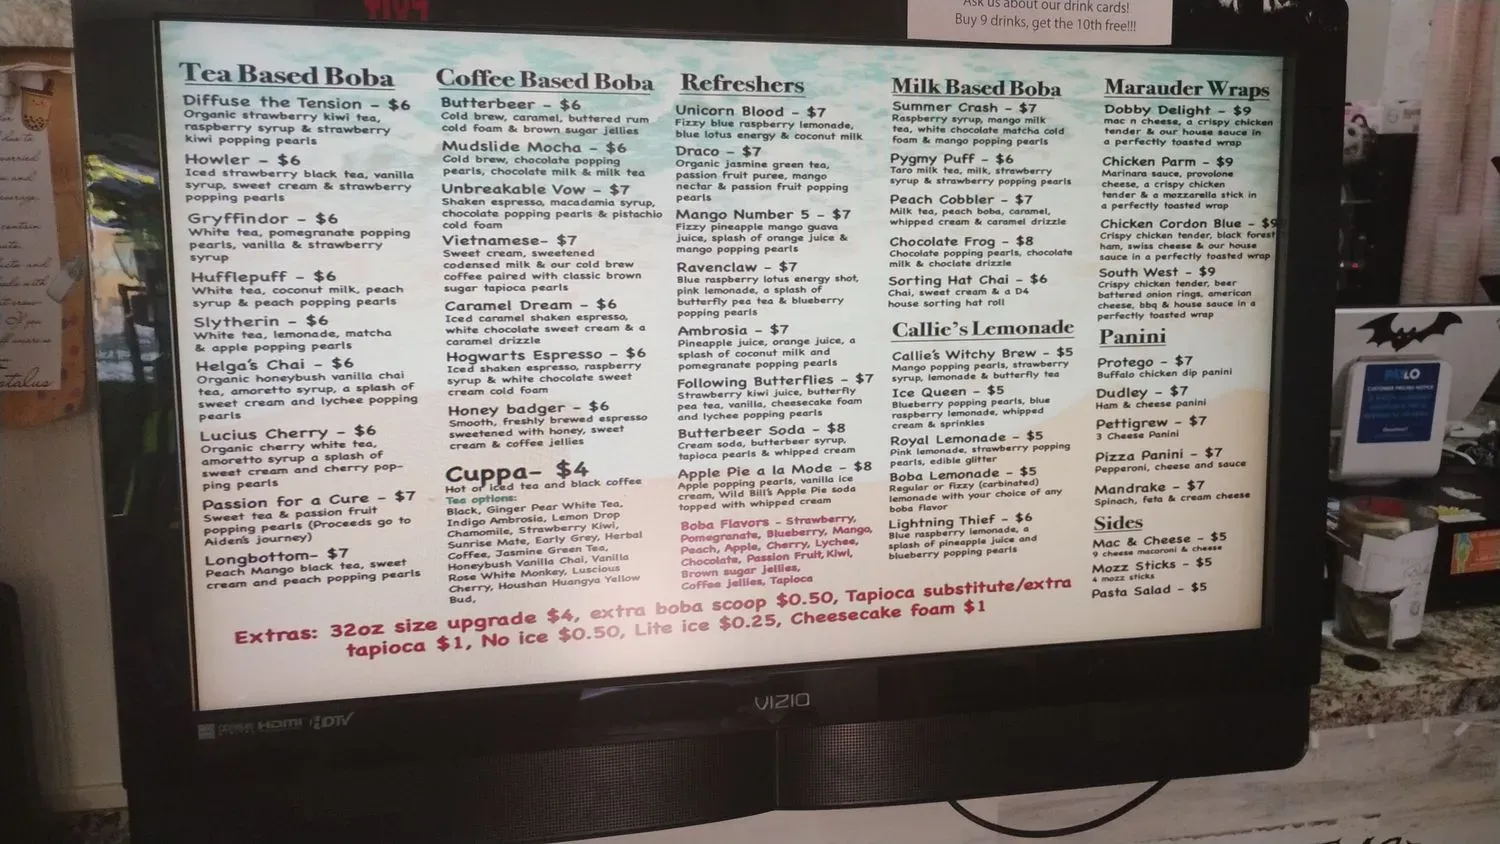 Ask us about our drink cards!
Buy 9 drinks, get the 10th free!!!
Tea Based Boba
Diffuse the Tension - $6
Organic strawberry kiwi tea,
raspberry syrup & strawberry
kiwi popping pearls
Howler - $6
Iced strawberry black tea, vanilla
syrup, sweet cream & strawberry
popping pearls
Gryffindor - $6
White tea, pomegranate popping
pearls, vanilla & strawberry
syrup
Hufflepuff - $6
White tea, coconut milk, peach
syrup & peach popping pearls
Slytherin - $6
White tea, lemonade, matcha
& apple popping pearls
Helga's Chai - $6
Organic honeybush vanilla chai
tea, amoretto syrup, a splash of
sweet cream and lychee popping
pearls
Lucius Cherry - $6
Organic cherry white tea,
amoretto syrup a splash of
sweet cream and cherry pop-
ping pearls
Passion for a Cure - $7
Sweet tea & passion fruit
popping pearls (Proceeds go to
Aiden's journey)
Longbottom- $7
Peach Mango black tea, sweet
cream and peach popping pearls
Coffee Based Boba
Butterbeer - $6
Cold brew, caramel, buttered rum
cold foam & brown sugar jellies
Mudslide Mocha - $6
Cold brew, chocolate popping
pearls, chocolate milk & milk tea
Unbreakable Vow - $7
Shaken espresso, macadamia syrup,
chocolate popping pearls & pistachio
cold foam
Vietnamese- $7
Sweet cream, sweetened
codensed milk & our cold brew
coffee paired with classic brown
sugar tapioca pearls
Caramel Dream - $6
Iced caramel shaken espresso,
white chocolate sweet cream & a
caramel drizzle
Hogwarts Espresso - $6
Iced shaken espresso, raspberry
syrup & white chocolate sweet
cream cold foam
Honey badger - $6
Smooth, freshly brewed espresso
sweetened with honey, sweet
cream & coffee jellies
Cuppa- $4
Hot or iced tea and black coffee
Tea options:
Black, Ginger Pear White Tea,
Indigo Ambrosia, Lemon Drop
Chamomile, Strawberry Kiwi,
Sunrise Mate, Early Grey, Herbal
Coffee, Jasmine Green Tea,
Honeybush Vanilla Chai, Vanilla
Rose White Monkey, Luscious
Cherry, Houshan Huangya Yellow
Bud,
Refreshers
Unicorn Blood - $7
Fizzy blue raspberry lemonade,
blue lotus energy & coconut milk
Draco - $7
Organic jasmine green tea,
passion fruit puree, mango
nectar & passion fruit popping
pearls
Mango Number 5 - $7
Fizzy pineapple mango guava
juice, splash of orange juice &
mango popping pearls
Ravenclaw - $7
Blue raspberry lotus energy shot,
pink lemonade, a splash of
butterfly pea tea & blueberry
popping pearls
Ambrosia - $7
Pineapple juice, orange juice, a
splash of coconut milk and
pomegranate popping pearls
Following Butterflies - $7
Strawberry kiwi juice, butterfly
pea tea, vanilla, cheesecake foam
and lychee popping pearls
Butterbeer Soda - $8
Cream soda, butterbeer syrup,
tapioca pearls & whipped cream
Apple Pie a la Mode - $8
Apple popping pearls, vanilla ice
cream, Wild Bill's Apple Pie soda
topped with whipped cream
Boba Flavors - Strawberry,
Pomegranate, Blueberry, Mango,
Peach, Apple, Cherry, Lychee,
Chocolate, Passion Fruit, Kiwi,
Brown sugar jellies,
Coffee jellies, Tapioca
Milk Based Boba
Summer Crash - $7
Raspberry syrup, mango milk
tea, white chocolate matcha cold
foam & mango popping pearls
Pygmy Puff - $6
Taro milk tea, milk, strawberry
syrup & strawberry popping pearls
Peach Cobbler - $7
Milk tea, peach boba, caramel,
whipped cream & caramel drizzle
Chocolate Frog - $8
Chocolate popping pearls, chocolate
milk & choclate drizzle
Sorting Hat Chai - $6
Chai, sweet cream & a D4
house sorting hat roll
Callie's Lemonade
Callie's Witchy Brew - $5
Mango popping pearls, strawberry
syrup, lemonade & butterfly tea
Ice Queen - $5
Blueberry popping pearls, blue
raspberry lemonade, whipped
cream & sprinkles
Royal Lemonade - $5
Pink lemonade, strawberry popping
pearls, edible glitter
Boba Lemonade - $5
Regular or fizzy (carbinated)
lemonade with your choice of any
boba flavor
Lightning Thief - $6
Blue raspberry lemonade, a
splash of pineapple juice and
blueberry popping pearls
Marauder Wraps
Dobby Delight - $9
mac n cheese, a crispy chicken
tender & our house sauce in
a perfectly toasted wrap
Chicken Parm - $9
Marinara sauce, provolone
cheese, a crispy chicken
tender & a mozzarella stick in
a perfectly toasted wrap
Chicken Cordon Blue - $9
Crispy chicken tender, black forest
ham, swiss cheese & our house
sauce in a perfectly toasted wrap
South West - $9
Crispy chicken tender, beer
battered onion rings, american
cheese, bbq & house sauce in a
perfectly toasted wrap
Panini
Protego - $7
Buffalo chicken dip panini
Dudley - $7
Ham & cheese panini
Pettigrew - $7
3 Cheese Panini
Pizza Panini - $7
Pepperoni, cheese and sauce
Mandrake - $7
Spinach, feta & cream cheese
Sides
Mac & Cheese - $5
9 cheese macaroni & cheese
Mozz Sticks - $5
4 mozz sticks
Pasta Salad - $5
Extras: 32oz size upgrade $4, extra boba scoop $0.50, Tapioca substitute/extra
tapioca $1, No ice $0.50, Lite ice $0.25, Cheesecake foam $1
VIZIO
HDMI HDTV